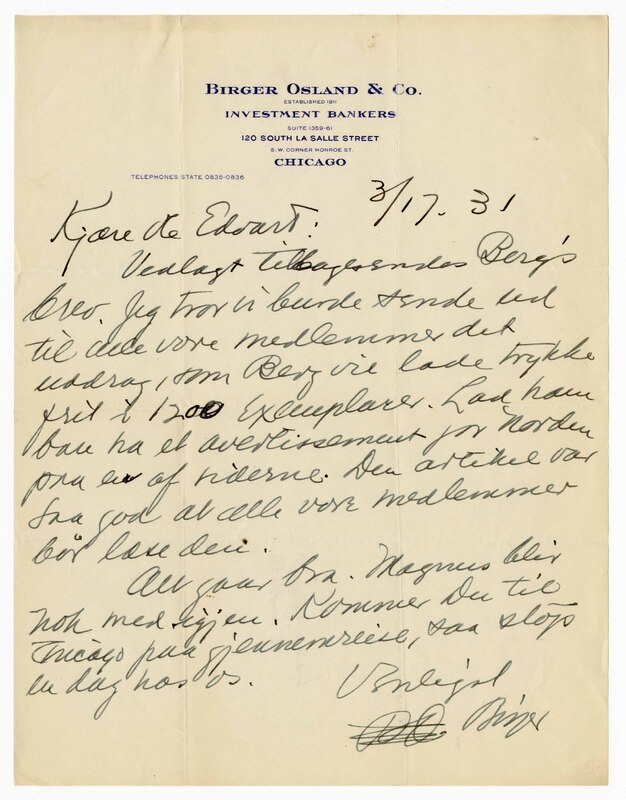 BIRGER OSLAND & CO.
ESTABLISHED 1911
INVESTMENT BANKERS
SUITE 1359-61
120 SOUTH LA SALLE STREET
S. W. CORNER MONROE ST.
CHICAGO
TELEPHONES STATE 0835-0836
3/17. 31
Kjære Edvart:
Vedlagt tilbagesendes Berg's
brev. Jeg tror vi burde sende ud
til alle vore medlemmer det
uddrag, som Berg vil lade trykke
frit i 1200 Exemplarer. Lad ham
bau ha et avertissement for Norden
paa en af siderne. Den artikel var
saa god at alle vore medlemmer
bør læse den.
Alt gaar bra. Magnus blir
nok med igjen. Kommer Du til
Chicago paa gjennemreise, saa stop
en dag hos os.
Venligst
Birger